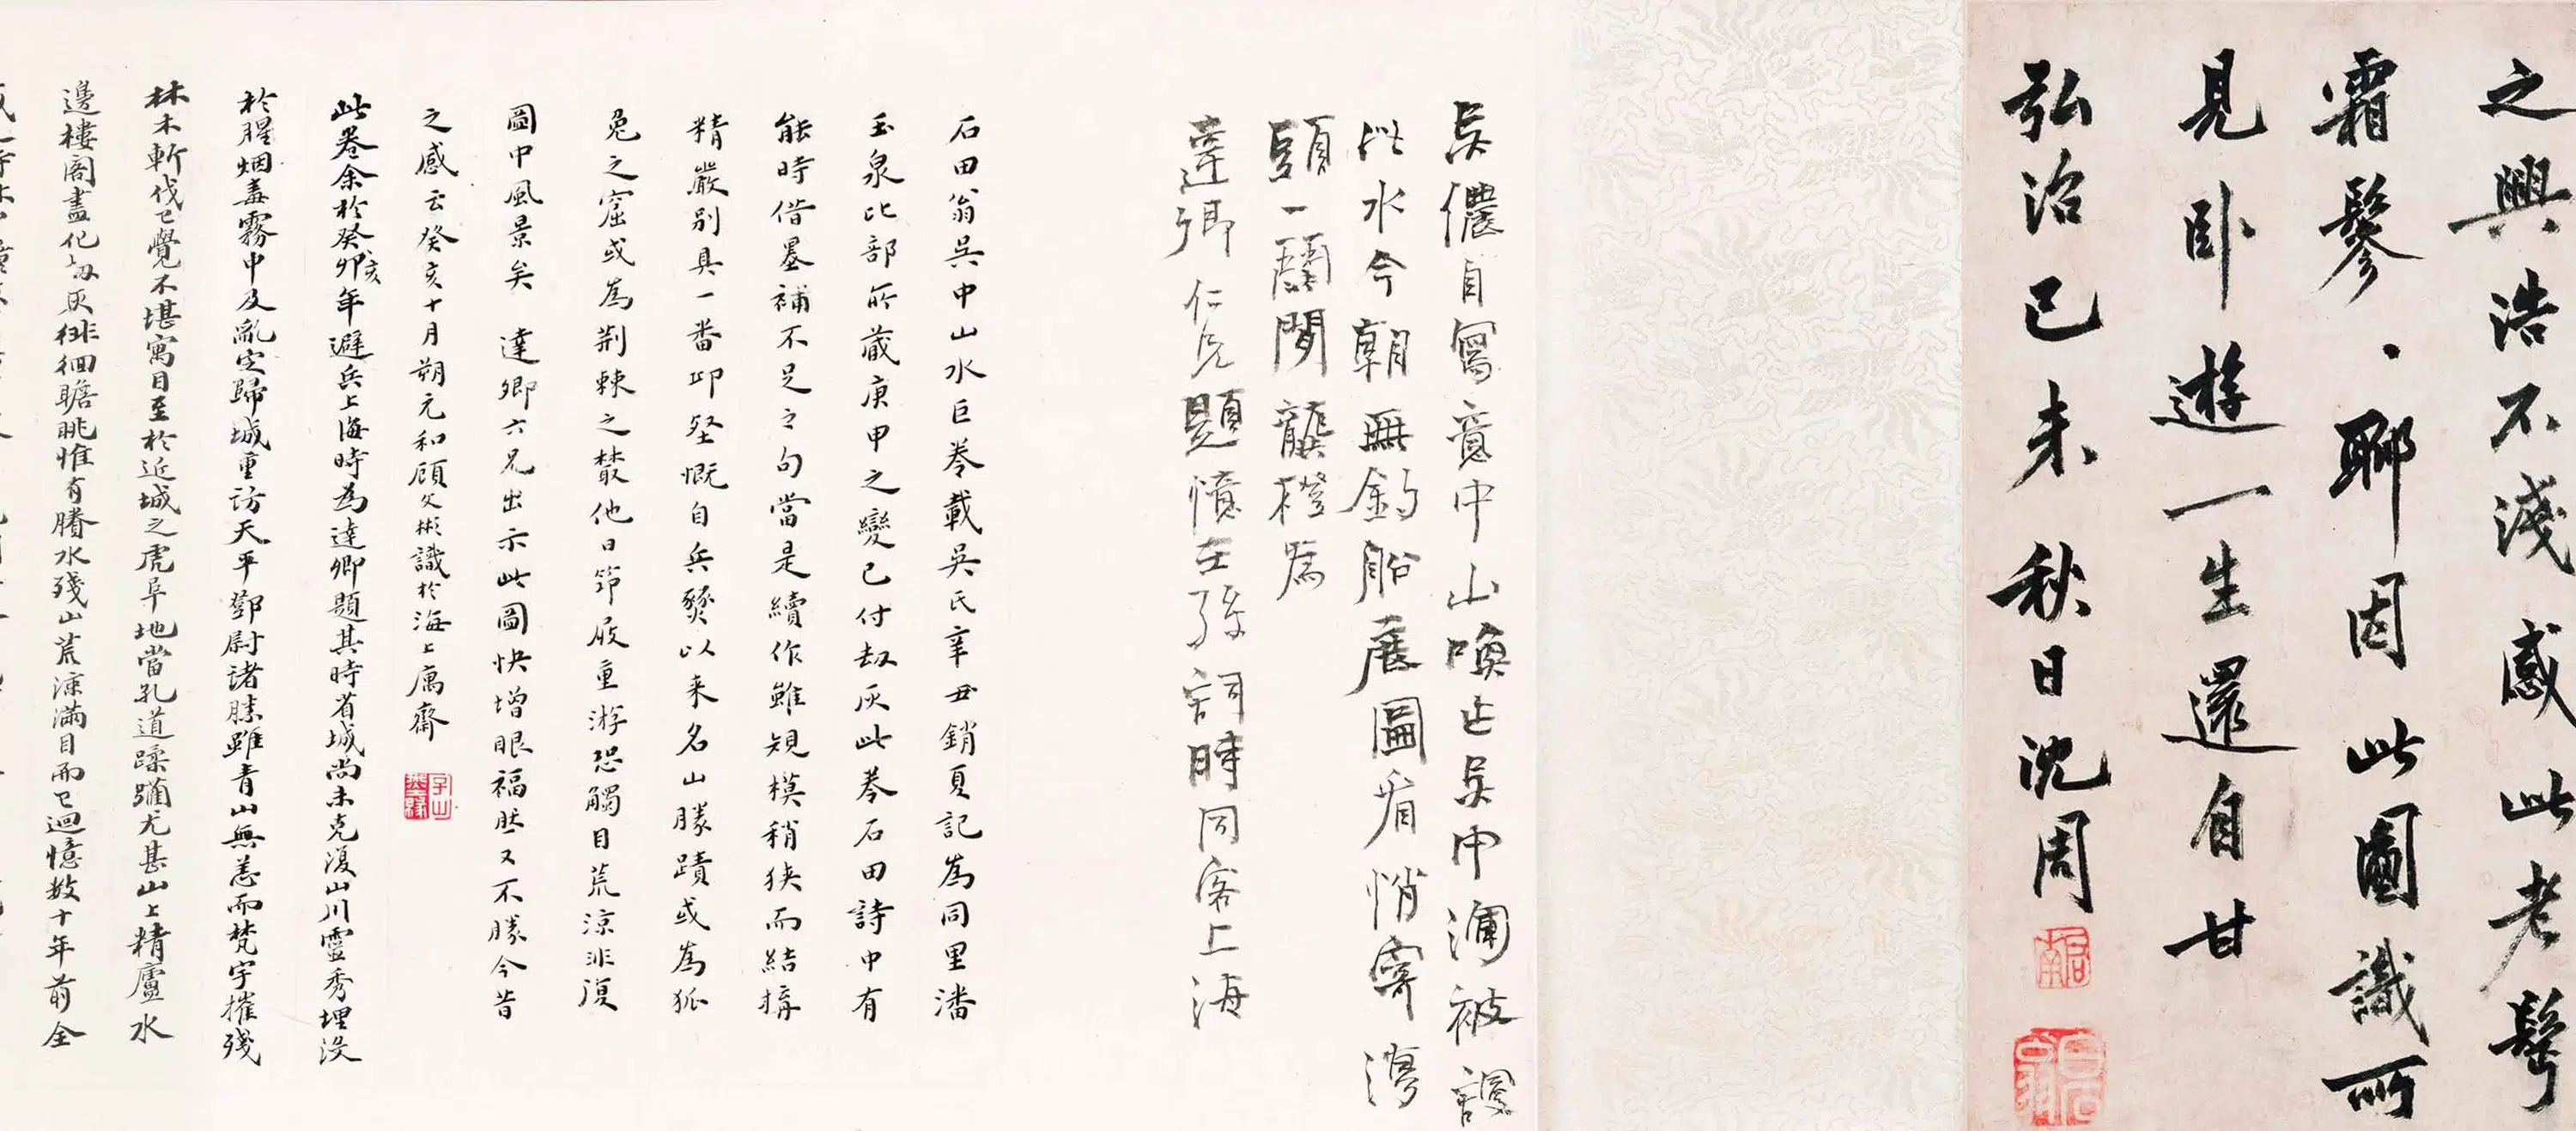 之興浩不淺感此老鬢
霜鬖聊因此圖識所
見卧遊一生還自甘
弘治己未秋日沈周
吳儂自寫意中山喚步吳中瀾被謾
此水今朝無釣船展圖看悄寄灣
頭一鬧閒龔橙為
達卿仁兄題憶在孫詞時同客上海
石田翁吳中山水巨卷載吳氏辛丑銷夏記為同里潘
玉泉比部所藏庚申之變已付劫灰此卷石田詩中有
能時借墨補不足之句當是續作雖規模稍狹而結搆
精嚴別具一番邱壑慨自兵燹以来名山勝蹟或為狐
兔之窟或為荆棘之叢他日笻屐重游恐觸目荒涼非復
圖中風景矣 達卿六兄出示此圖快增眼福然又不勝今昔
之感云癸亥十月朔元和顧文彬識於海上寓齋
此卷余於癸卯亥年避兵上海時為達卿題其時省城尚未克復山川靈秀埋没
於腥烟毒霧中及亂定歸城重訪天平鄧尉諸勝雖青山無恙而梵宇摧殘
林木斬伐已覺不堪寓目至於近城之虎阜地當孔道蹂躪尤甚山上精廬水
邊樓閣盡化劫灰徘徊瞻眺惟有賸水殘山荒涼滿目而已迴憶數十年前全